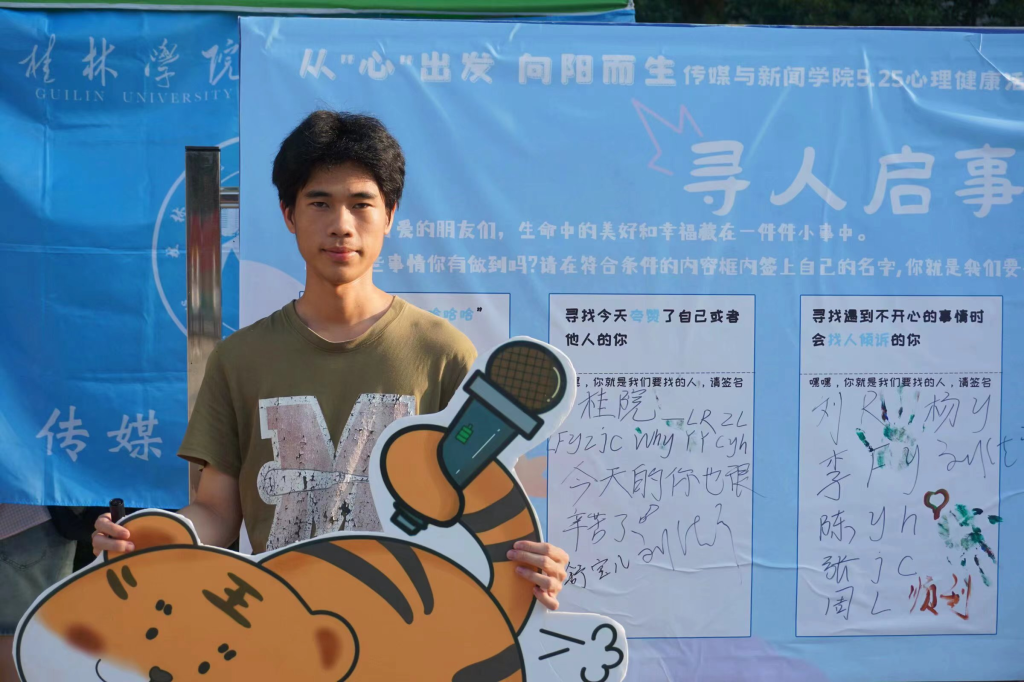 桂林学院
GUILIN UNIVERSITY
传媒
从"心"出发 向阳而生 传媒与新闻学院5.25心理健康活
寻人启事
爱的朋友们，生命中的美好和幸福藏在一件件小事中。
些事情你有做到吗?请在符合条件的内容框内签上自己的名字,你就是我们要
哈哈哈"
寻找今天夸赞了自己或者
他人的你
，你就是我们要找的人，请签名
桂院
LRZL
Fyzjc Why YY Cyh
今天的你也很
辛苦了
舒宝儿
寻找遇到不开心的事情时
会找人倾诉的你
嘿嘿，你就是我们要找的人，请签名
刘 R 杨 y
李
陈 y h
张 j c
周 L 顺利
王
M